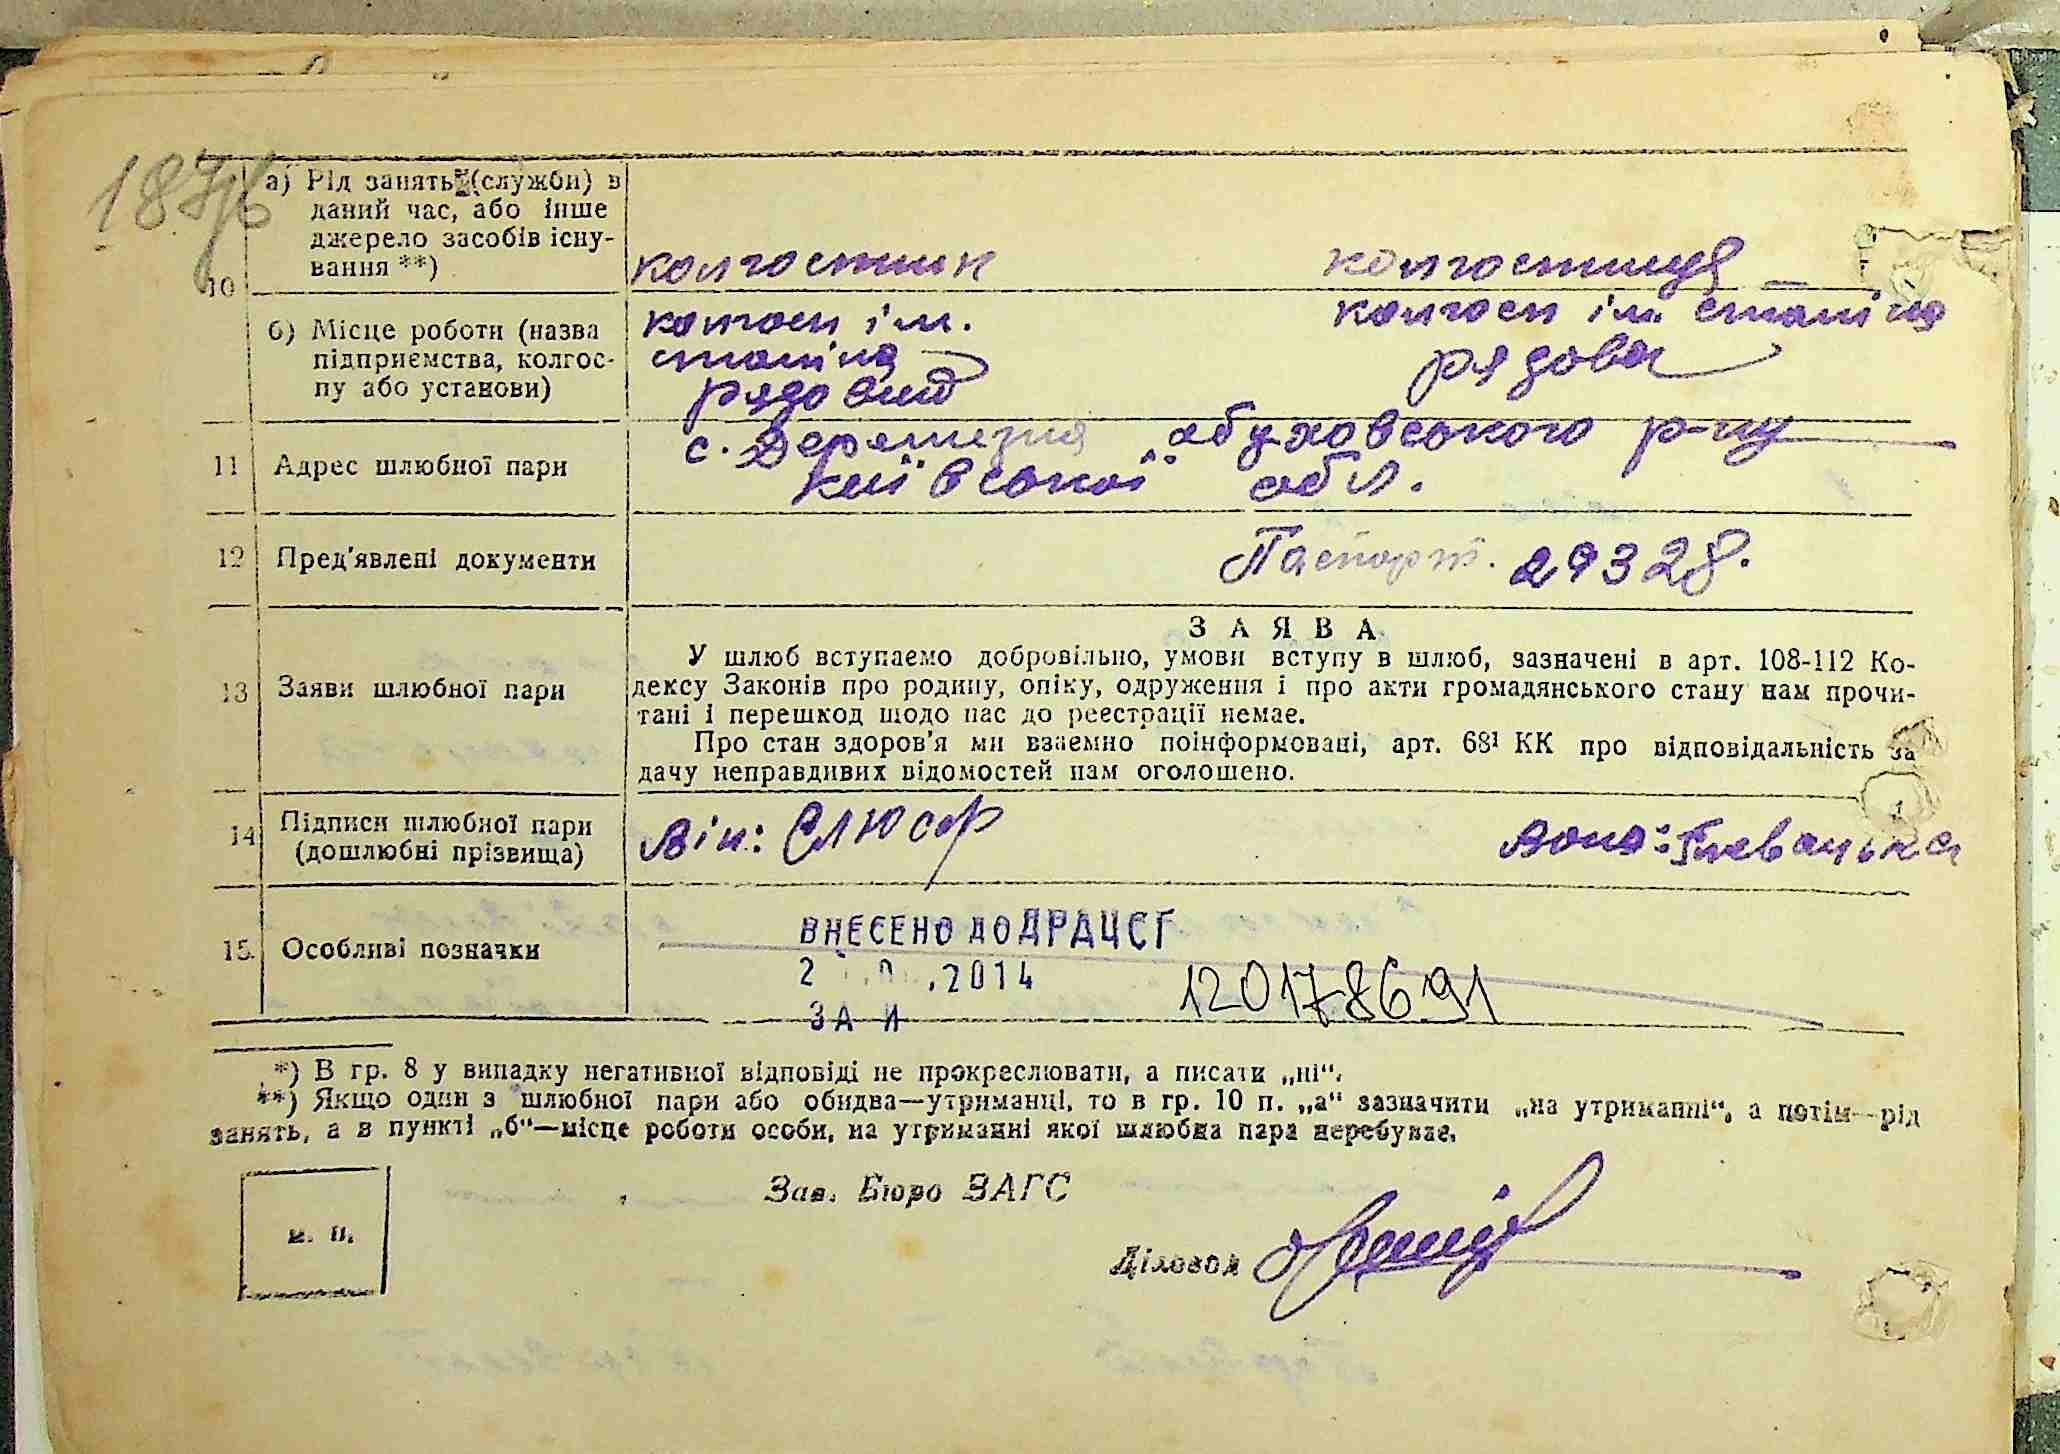 187
а) Рід занять (служби) в
даний час, або інше
джерело засобів існу-
вання **)
10
колгостник
колгостниця
б) Місце роботи (назва
підприємства, колгос-
пу або установи)
колгосп ім.
сталіна
рядовий
колгосп ім. сталіна
рядова
11 Адрес шлюбної пари
с. Деремезна обуховського р-ну
київської обл.
12 Пред'явлені документи
Паспорт. 29328.
13 Заяви шлюбної пари
ЗАЯВА
У шлюб вступаємо добровільно, умови вступу в шлюб, зазначені в арт. 108-112 Ко-
дексу Законів про родину, опіку, одруження і про акти громадянського стану нам прочи-
тані і перешкод щодо нас до реєстрації немає.
Про стан здоров'я ми взаємно поінформовані, арт. 68¹ КК про відповідальність за
дачу неправдивих відомостей нам оголошено.
14 Підписи шлюбної пари
(дошлюбні прізвища)
Він: Слюсар
Вона:
15. Особливі позначки
ВНЕСЕНО ДО ДРАЦСГ
2 .2014
ЗА И
120178691
*) В гр. 8 у випадку негативної відповіді не прокреслювати, а писати „ні“.
**) Якщо один з шлюбної пари або обидва—утриманці, то в гр. 10 п. „а“ зазначити „на утриманні“, а потім—рід
занять, а в пункті „б“—місце роботи особи, на утриманні якої шлюбна пара перебуває.
Зав. Бюро ЗАГС
м. п.
Діловод